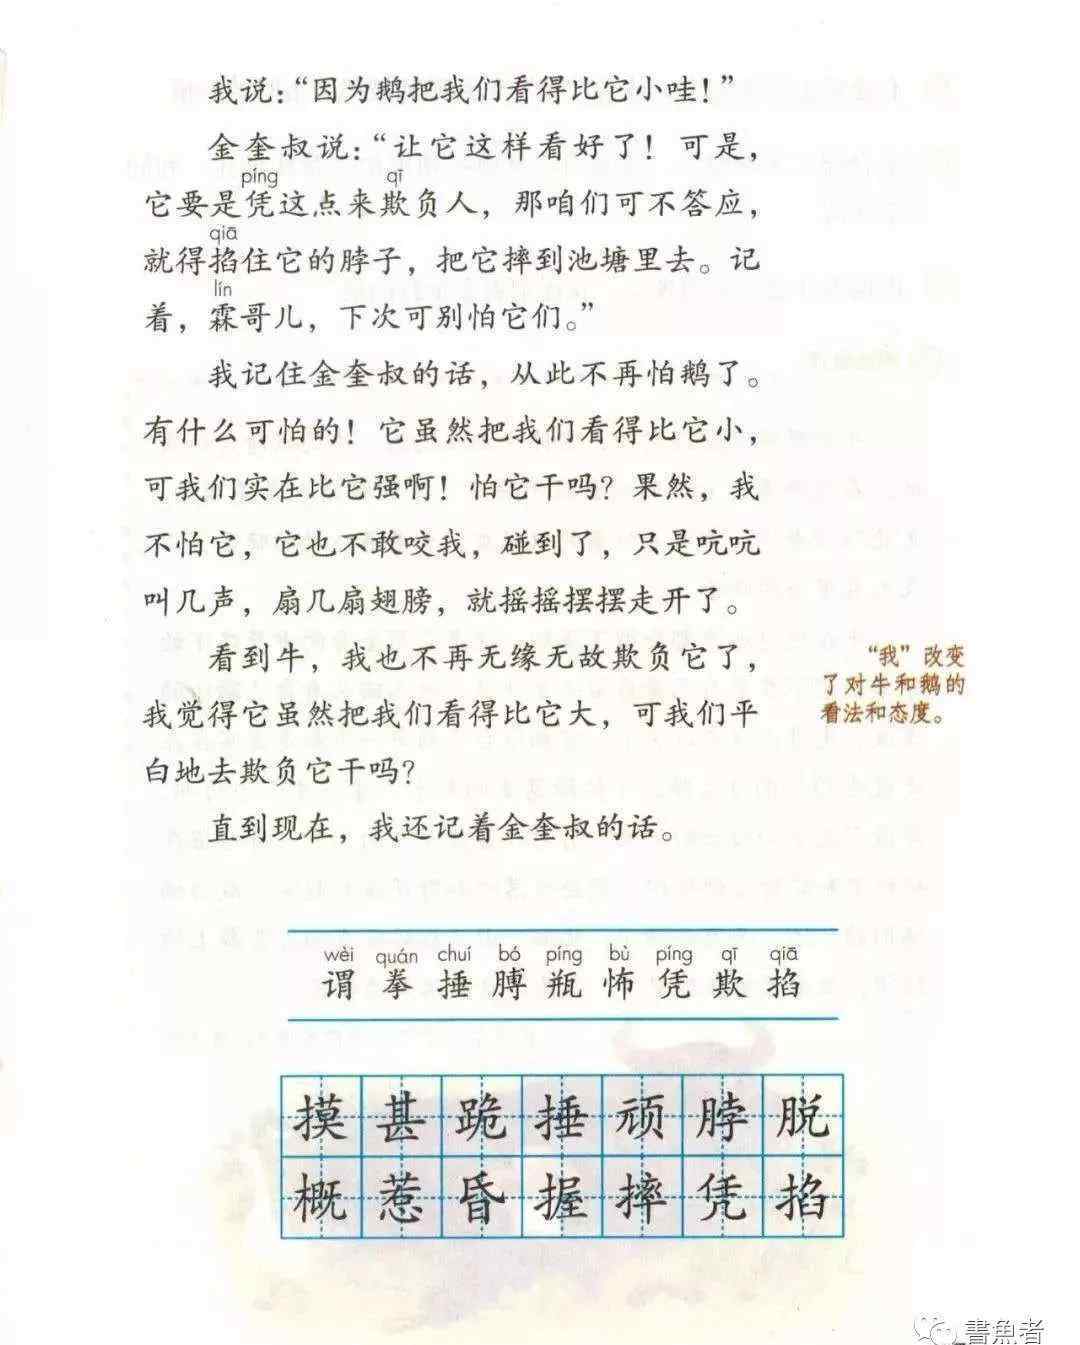 我说：“因为鹅把我们看得比它小哇！”
金奎叔说：“让它这样看好了！可是，
píng qī
它要是凭这点来欺负人，那咱们可不答应，
qiā
就得掐住它的脖子，把它摔到池塘里去。记
lín
着，霖哥儿，下次可别怕它们。”
我记住金奎叔的话，从此不再怕鹅了。
有什么可怕的！它虽然把我们看得比它小，
可我们实在比它强啊！怕它干吗？果然，我
不怕它，它也不敢咬我，碰到了，只是吭吭
叫几声，扇几扇翅膀，就摇摇摆摆走开了。
看到牛，我也不再无缘无故欺负它了，
我觉得它虽然把我们看得比它大，可我们平
白地去欺负它干吗？
直到现在，我还记着金奎叔的话。
“我”改变
了对牛和鹅的
看法和态度。
wèi quán chuí bó píng bù píng qī qiā
谓 拳 捶 膊 瓶 怖 凭 欺 掐
摸 甚 跪 捶 顽 脖 脱
概 惹 昏 握 摔 凭 掐
書魚者